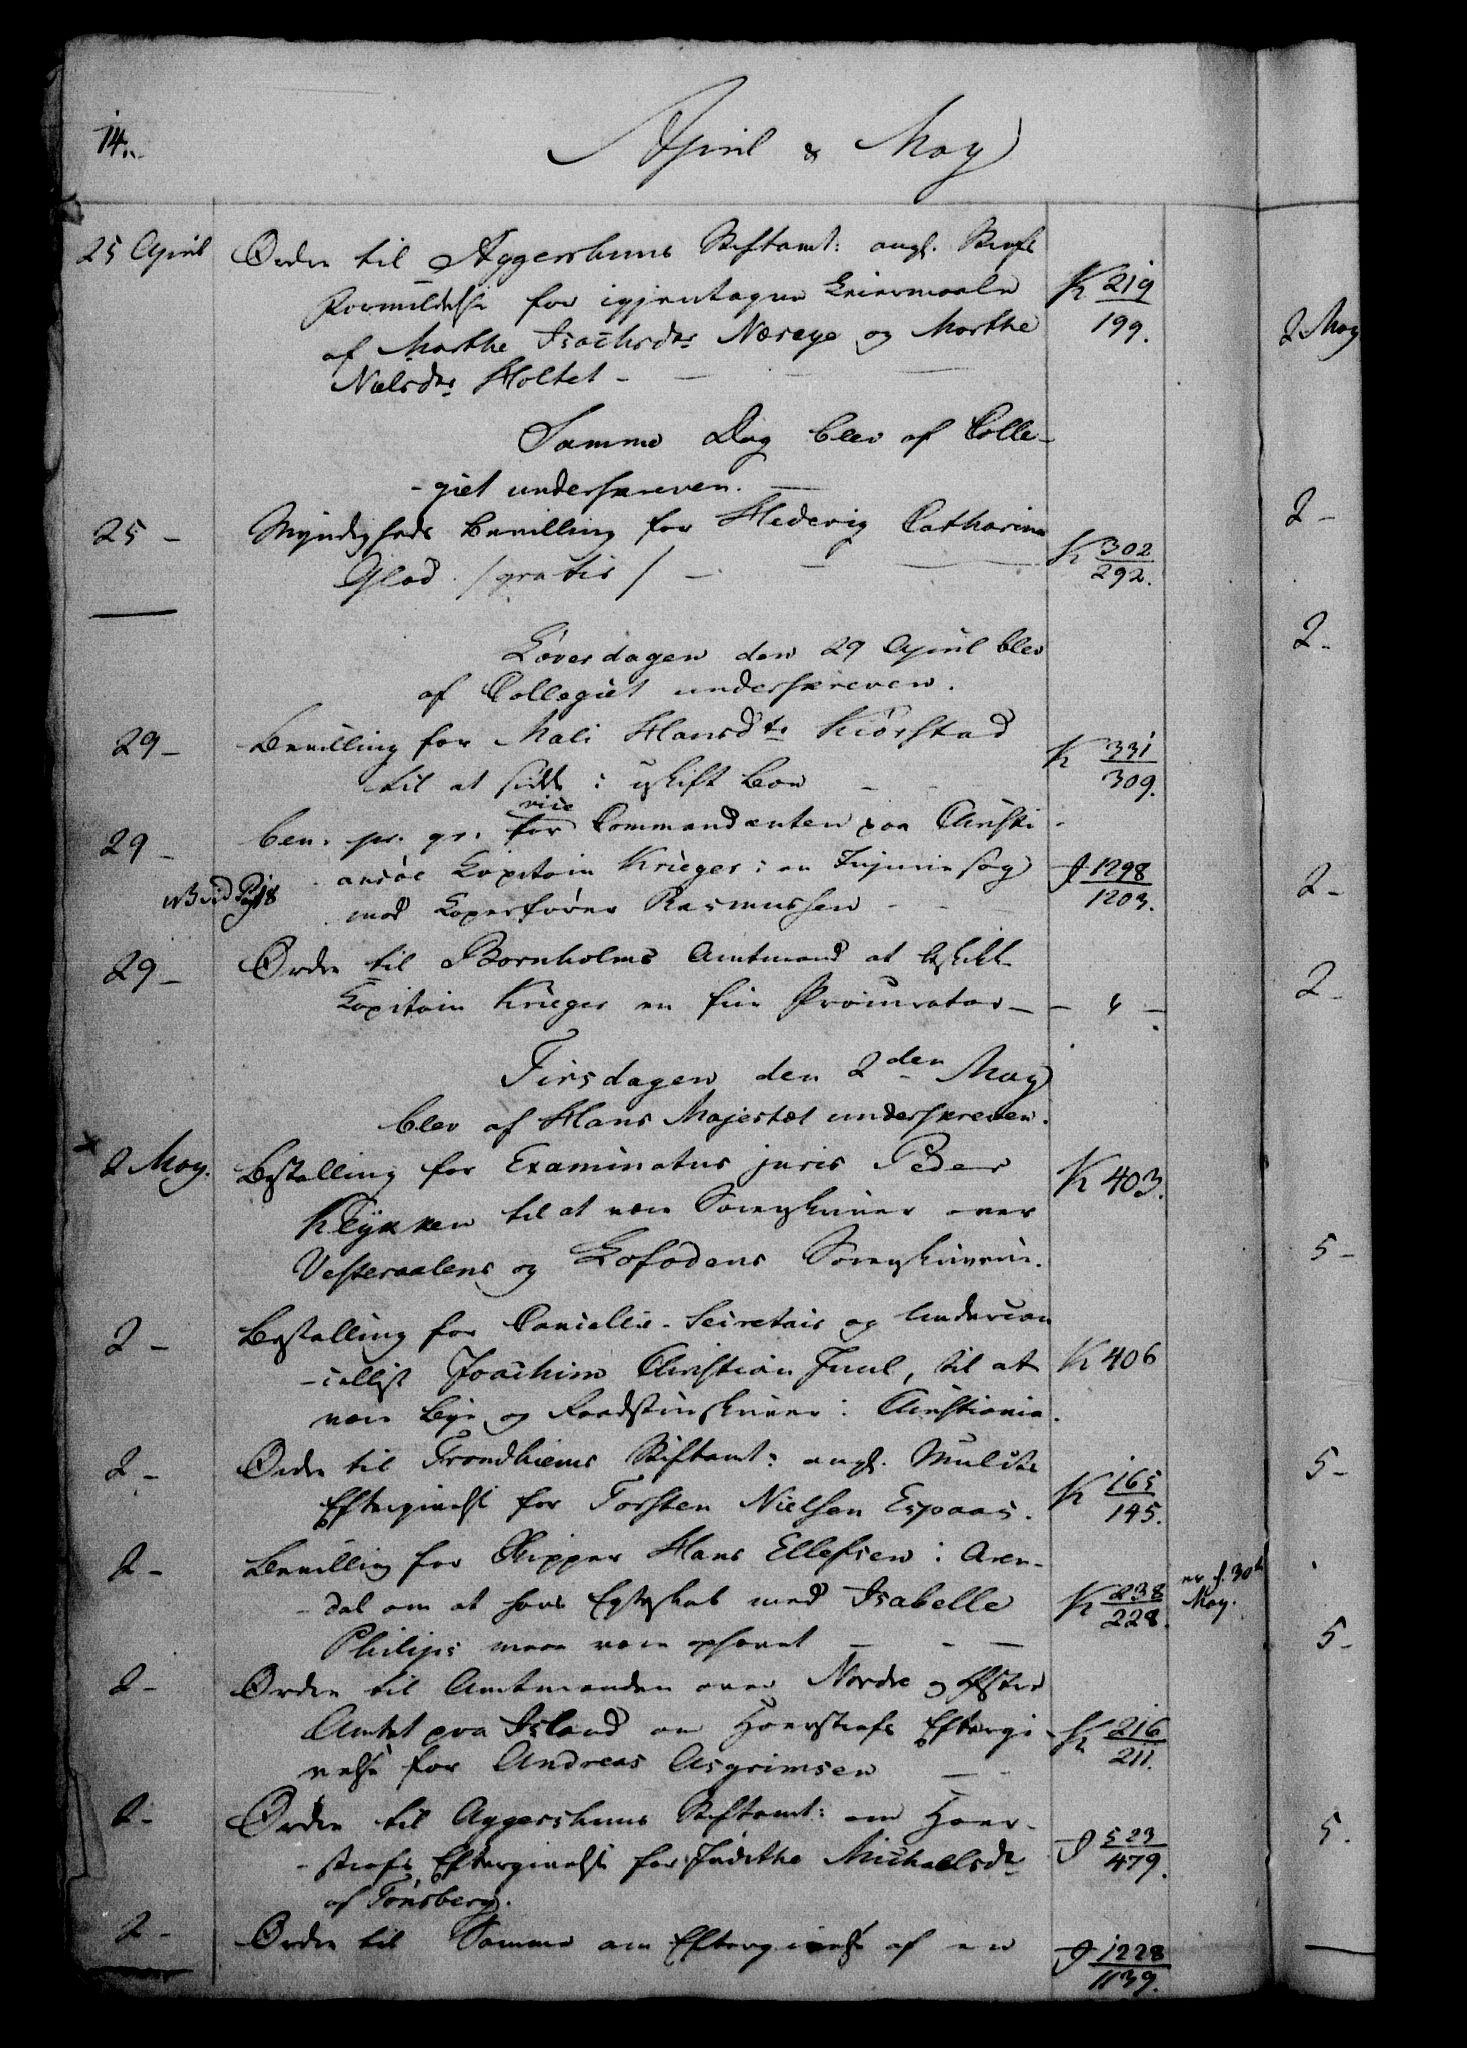 14.
April & May
25 April Ordre til Aggershuus Stiftamt: angl. Strafs K 219
Formildelse for igjentagne Leiermaale 199.
af Marthe Isachsdr Næsøye og Marthe
Nielsdr Holtet -
Samme Dag blev af Colle-
-giet underskreven. -
25 - Myndigheds Bevilling for Hedevig Catharina K 302
Glad /gratis/ - 292.
Løverdagen den 29 April blev
af Collegiet underskreven.
29 - Bevilling for Mali Hansdtr Kiørstad K 331
til at sidde i uskift Boe - 309.
vice
29 - ben. pr. gr. for Commandanten paa Christi-
ansøe Capitain Krieger i en Injurie Sag J 1298
NB vid Pag 18 mod Rasmussen - 1203.
29 - Ordre til Bornholms Amtmand at beskikke
Capitain Krieger en frie Procurator -
Tirsdagen den 2den May
blev af Hans Majestæt underskreven.
2 May. Bestalling for Examinatus juris Peder K 403.
til at være Sorenskriver over
Vesteraalens og Lofodens Sorenskriverie.
2 - Bestalling for Cancellie-Secretair og Undercan
-cellist Joachim Christian Juul, til at K 406
være Bye og Raadstueskriver i Christiania.
2 - Ordre til Trondhiems Stiftamt: angl. Mulcts K 165
Eftergivelse for Torsten Nielsen Espaas. 145.
2 - Bevilling for Skipper Hans Ellefsen i Aren-
-dal om at hans Egteskab med Isabelle K 238
Philips maae være ophævet - 228.
30te
May.
2 - Ordre til Amtmanden over Nordre og Øster
Amtet paa Island om Hoerstrafs Eftergi- K 216
velse for Andreas Asgrimsen - 211.
2 - Ordre til Aggershuus Stiftamt: om Hoer-
-strafs Eftergivelse for Judithe Michaelsdr J 523
af Tønsberg. 479.
2 - Ordre til Samme om Eftergivelse af en J 1228
1139.
2 May
2 -
2 -
2 -
2 -
5 -
5 -
5 -
5.